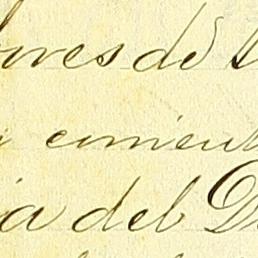 ores de
cimient
ia del D